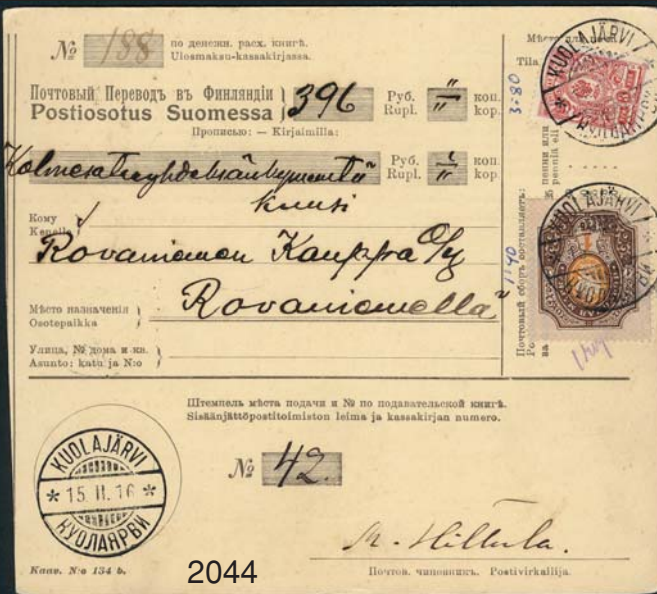 № 188 по денежн. расх. книгѣ.
Ulosmaksu-kassakirjassa.
Мѣсто для
Tila
KUOLAJÄRVI
Почтовый Переводъ въ Финляндіи
Postiosotus Suomessa
396
Руб. Rupl.
" коп. kop.
3:80
Прописью: — Kirjaimilla:
Kolmesataayhdeksänkymmentä
Руб. Rupl.
" коп. kop.
kuusi
Кому
Kenelle
Rovaniemen Kauppa O/y
KUOLAJÄRVI
1:40
Мѣсто назначенія
Osotepaikka
Rovaniemellä
Улица, № дома и кв.
Asunto: katu ja N:o
Почтовый сборъ составляетъ:
пенни или
penniä eli
Штемпель мѣста подачи и № по подавательской книгѣ.
Sisäänjättöpostitoimiston leima ja kassakirjan numero.
KUOLAJÄRVI
* 15.II.16 *
КУОЛАЯРВИ
№ 42.
M. Hiltula.
Kaav. N:o 154 b.
2044
Почтов. чиновникъ. Postivirkailija.